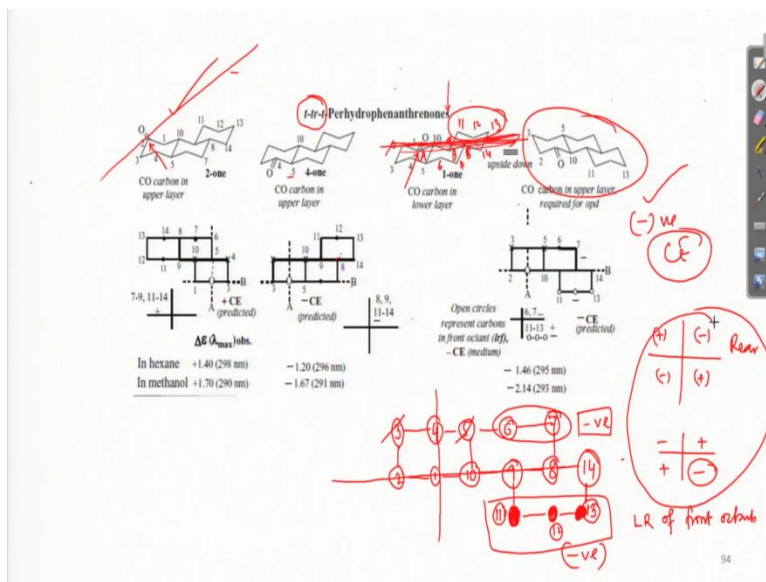 t-tr-t-Perhydrophenanthrenones
O
1
2
3
4
5
7
8
10
11
12
13
14
2-one
CO carbon in
upper layer
10
O
5
4-one
CO carbon in
upper layer
11 12 13
1
O
10
2
3
4
5
6
8
14
1-one
CO carbon in
lower layer
upside down
3
5
2
O
10
13
CO carbon in upper layer,
required for opd
(-) ve
CE
13 14 8 7 6
10 5 4
12 11 9
1 3 B
A
+CE
(predicted)
7-9, 11-14
+
12
11 13
10 8
9 14
3 5 B
A
−CE
(predicted)
8, 9,
11-14
−
3 5 6 7
−
2 10 B
A
11 − 13
−CE
(predicted)
Open circles
represent carbons
in front octant (lrf),
−CE (medium)
6, 7 −
11-13 +
o-o-o −
Δε (λmax) obs.
In hexane +1.40 (298 nm) − 1.20 (296 nm) − 1.46 (295 nm)
In methanol +1.70 (290 nm) − 1.67 (291 nm) − 2.14 (293 nm)
(+) (-) Rear
(-) (+)
− +
+ −
LR of front octants
3 4 5 6 7 -ve
2 1 10 9 8 14
11 12 13
(-ve)
94